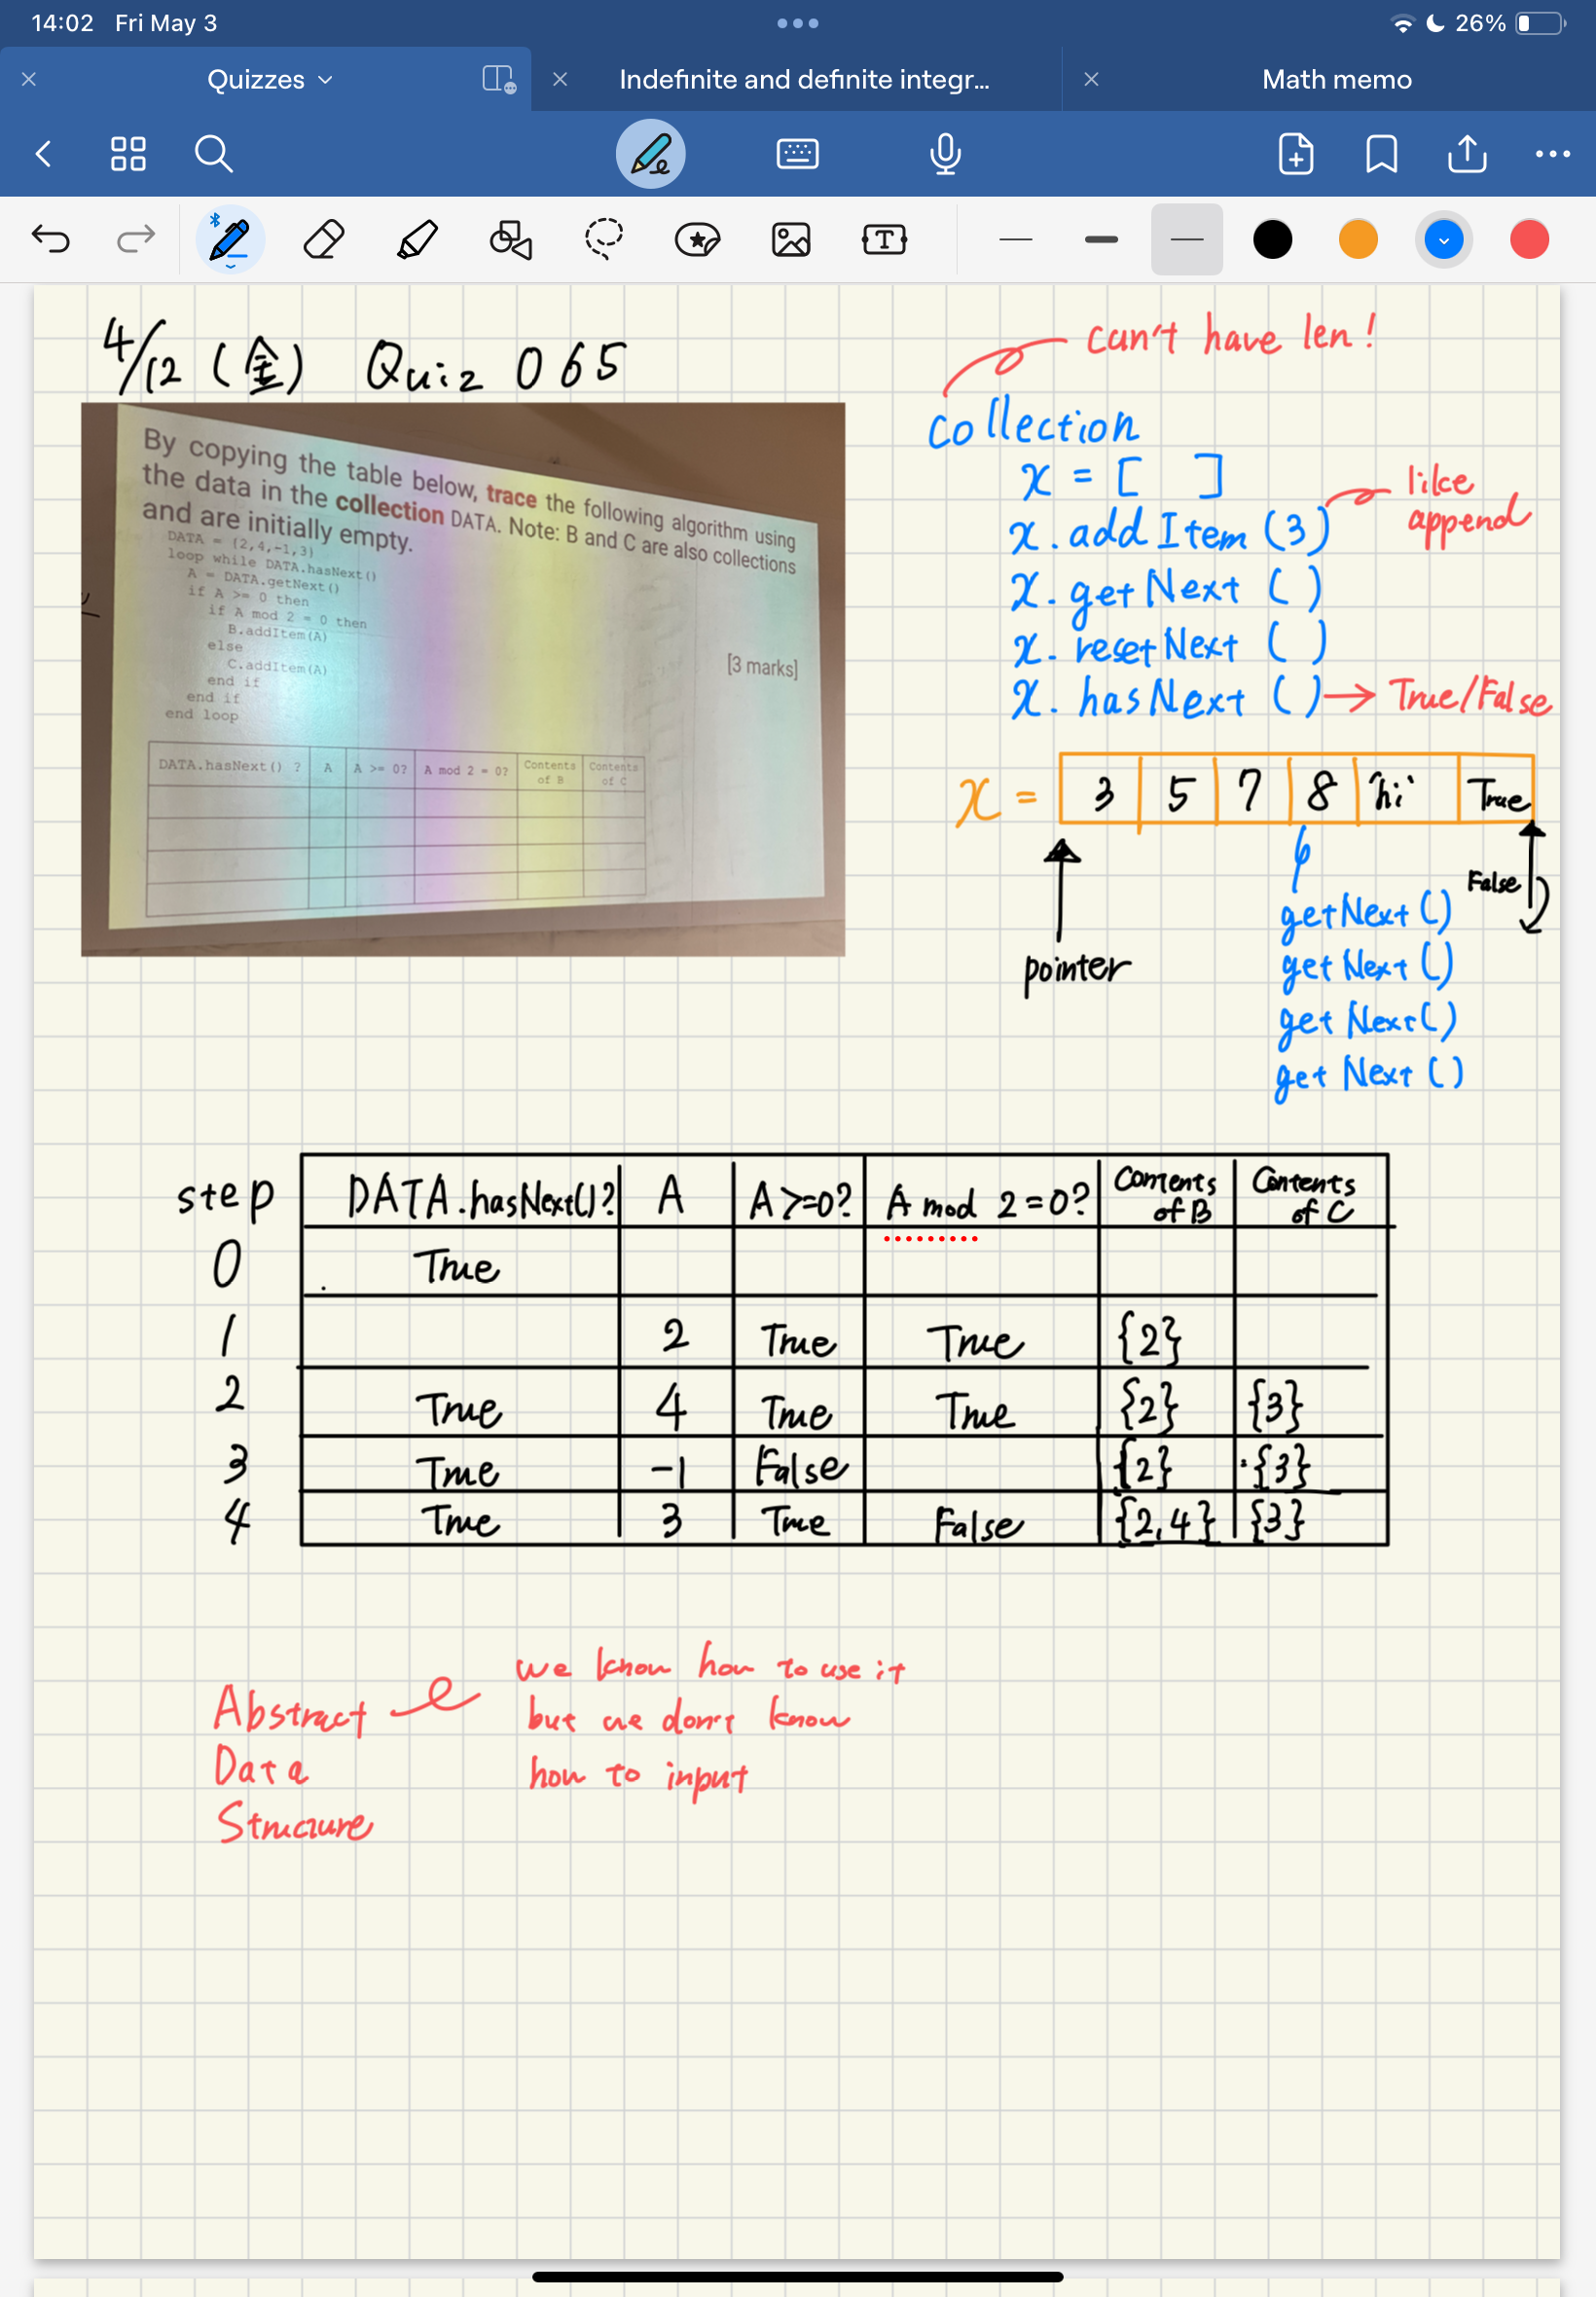 14:02 Fri May 3
26%
Quizzes
Indefinite and definite integr...
Math memo
4/12 (金) Quiz 065
By copying the table below, trace the following algorithm using
the data in the collection DATA. Note: B and C are also collections
and are initially empty.
DATA = (2,4,-1,3)
loop while DATA.hasNext()
A = DATA.getNext()
if A >= 0 then
if A mod 2 = 0 then
B.addItem(A)
else
C.addItem(A)
end if
end if
end loop
[3 marks]
DATA.hasNext() ? A A >= 0? A mod 2 = 0? Contents of B Contents of C
can't have len!
collection
x = [ ]
x. addItem (3)
like
append
x. getNext ( )
x. resetNext ( )
x. hasNext ( ) → True/False
x = 3 5 7 8 "hi" True
pointer
False
getNext()
getNext()
getNext()
getNext()
step DATA.hasNext()? A A>=0? A mod 2=0? Contents of B Contents of C
0 True
1 2 True True {2}
2 True 4 True True {2} {3}
3 True -1 False {2} {3}
4 True 3 True False {2,4} {3}
Abstract
Data
Structure
we know how to use it
but we don't know
how to input